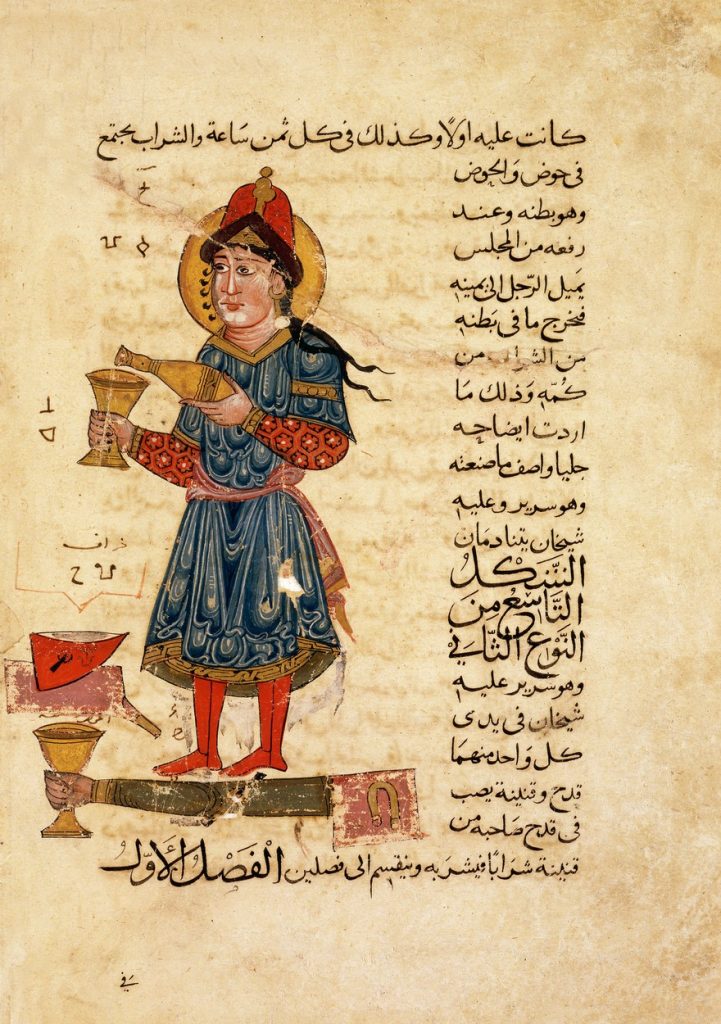 كانت عليه اولًا وكذلك فى كل ثمن سَاعة والشراب يجتمع
فى حوض وَالحوض
وهو بطنه وعند
رفعه من المجلس
يَميل الرّجل الى يمينه
فيخرج ما فى بَطنه
من الشراب من
كُمّه وَذلك مَا
اردت ايضاحه
جليا واصف ما صنعته
وهو سرير وعليه
شيخان يتنادمان
الشكل
التّاسع من
النّوع الثّانى
وهو سرير عليه
شيخان فى يدى
كل وَاحد منهمَا
قدح وقنينة يصب
فى قدح صَاحبه من
قنينة شرَابًا فيشرَبه وينقسم الى فصلين الفَصْل الأَوّل
فى